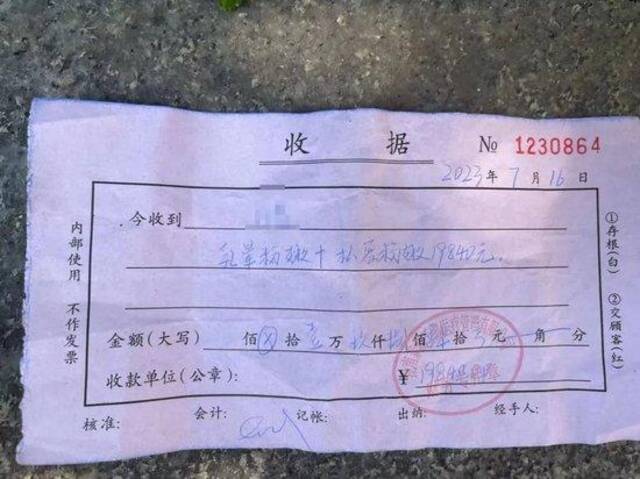 收 据 № 1230864
2023年 7月 16日
今收到
乳晕粉嫩+私密粉嫩19840元.
金额(大写) 佰⊗拾壹万玖仟捌佰肆拾 元 角 分
收款单位(公章): ¥ 19840
核准: 会计: 记帐: 出纳: 经手人:
内部使用 不作发票
①存根(白) ②交顾客(红)